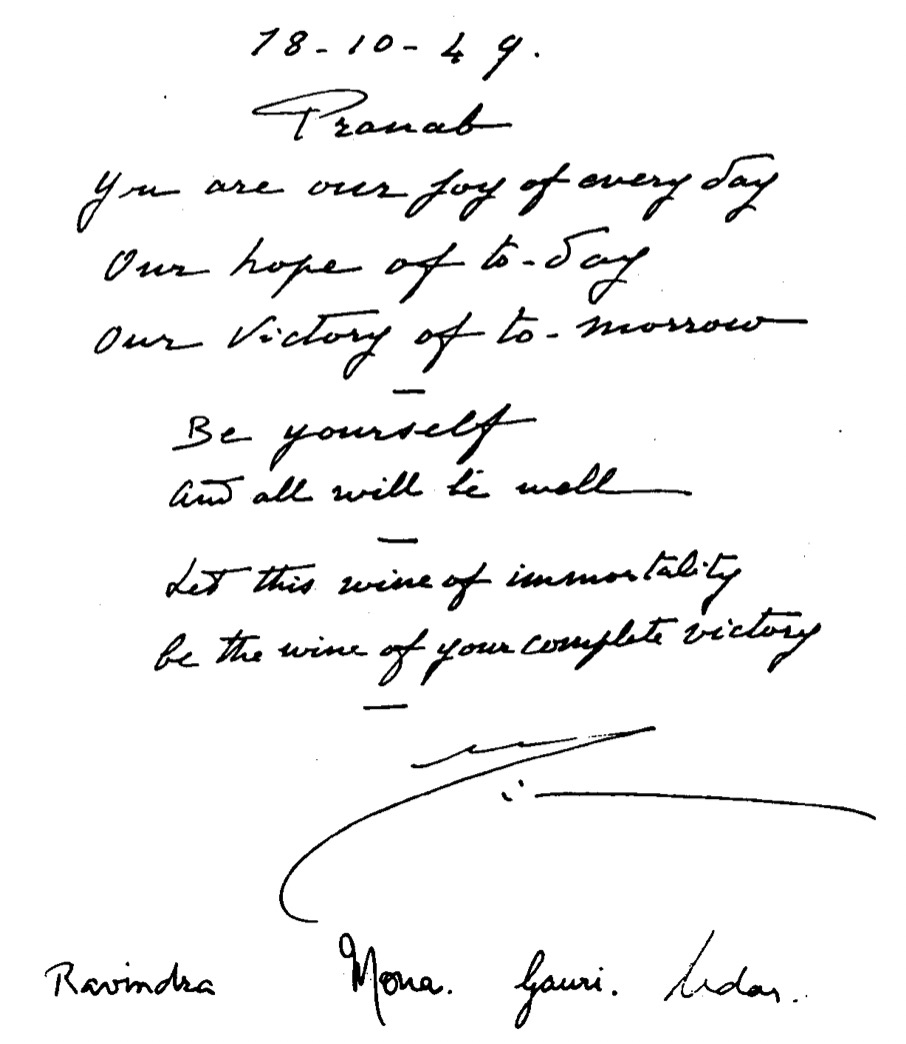 18-10-49.
Pranab
You are our joy of every day
Our hope of to-day
Our Victory of to-morrow
—
Be yourself
And all will be well
—
Let this wine of immortality
be the wine of your complete victory
—
Ravindra Mona. Gauri. Udar.